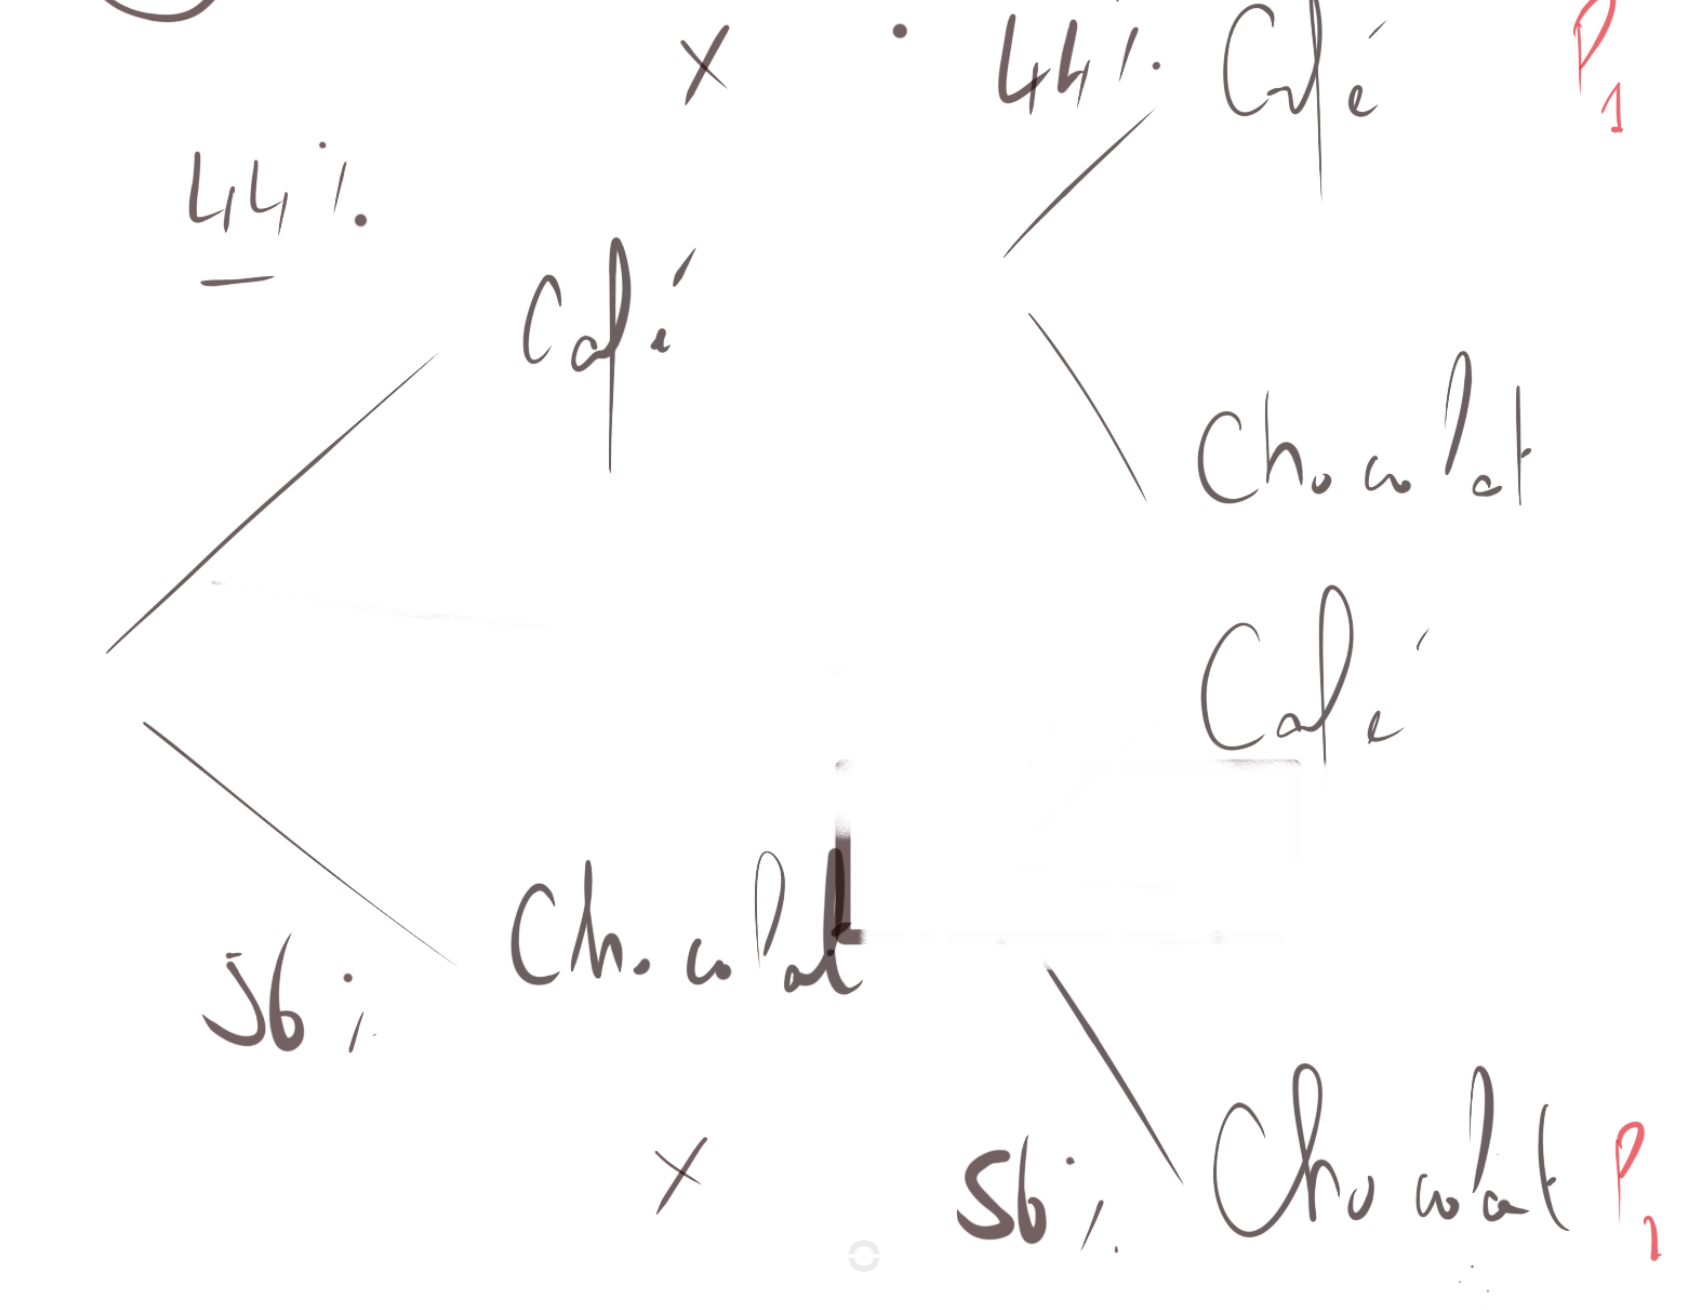 × 44% Café P1
44%
Café
Chocolat
Café
Chocolat
56%
× 56% Chocolat P1